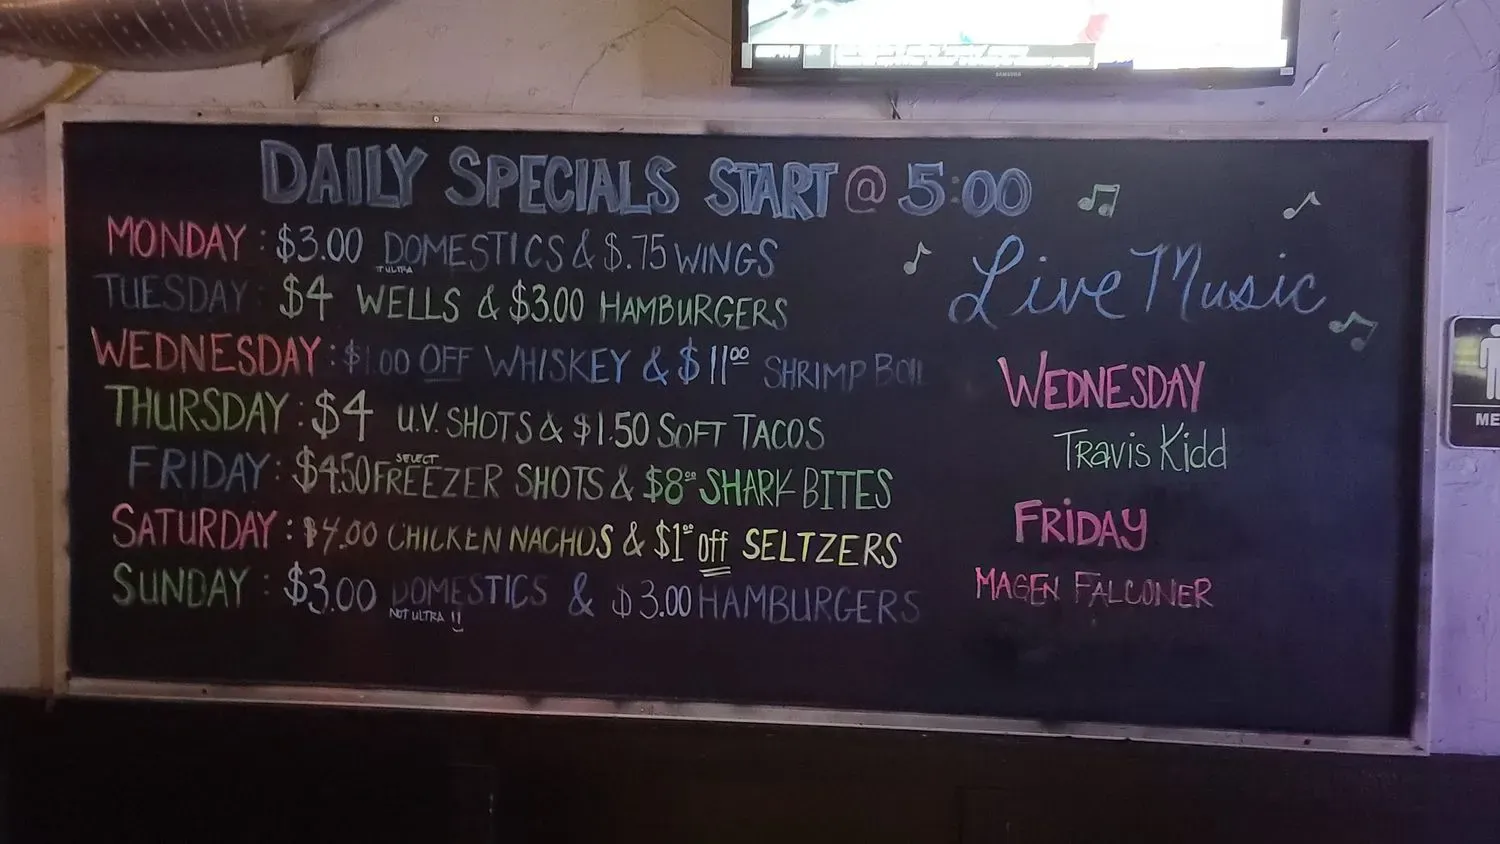 SAMSUNG
DAILY SPECIALS START @ 5:00
MONDAY : $3.00 DOMESTICS & $.75 WINGS
TUESDAY : $4 WELLS & $3.00 HAMBURGERS
WEDNESDAY : $1.00 OFF WHISKEY & $11⁰⁰ SHRIMP BOIL
THURSDAY : $4 U.V. SHOTS & $1.50 SOFT TACOS
SELECT
FRIDAY : $4.50 FREEZER SHOTS & $8⁰⁰ SHARK BITES
SATURDAY : $7.00 CHICKEN NACHOS & $1⁰⁰ off SELTZERS
SUNDAY : $3.00 DOMESTICS & $3.00 HAMBURGERS
NOT ULTRA !!
Live Music
WEDNESDAY
Travis Kidd
FRIDAY
MAGEN FALCONER
ME